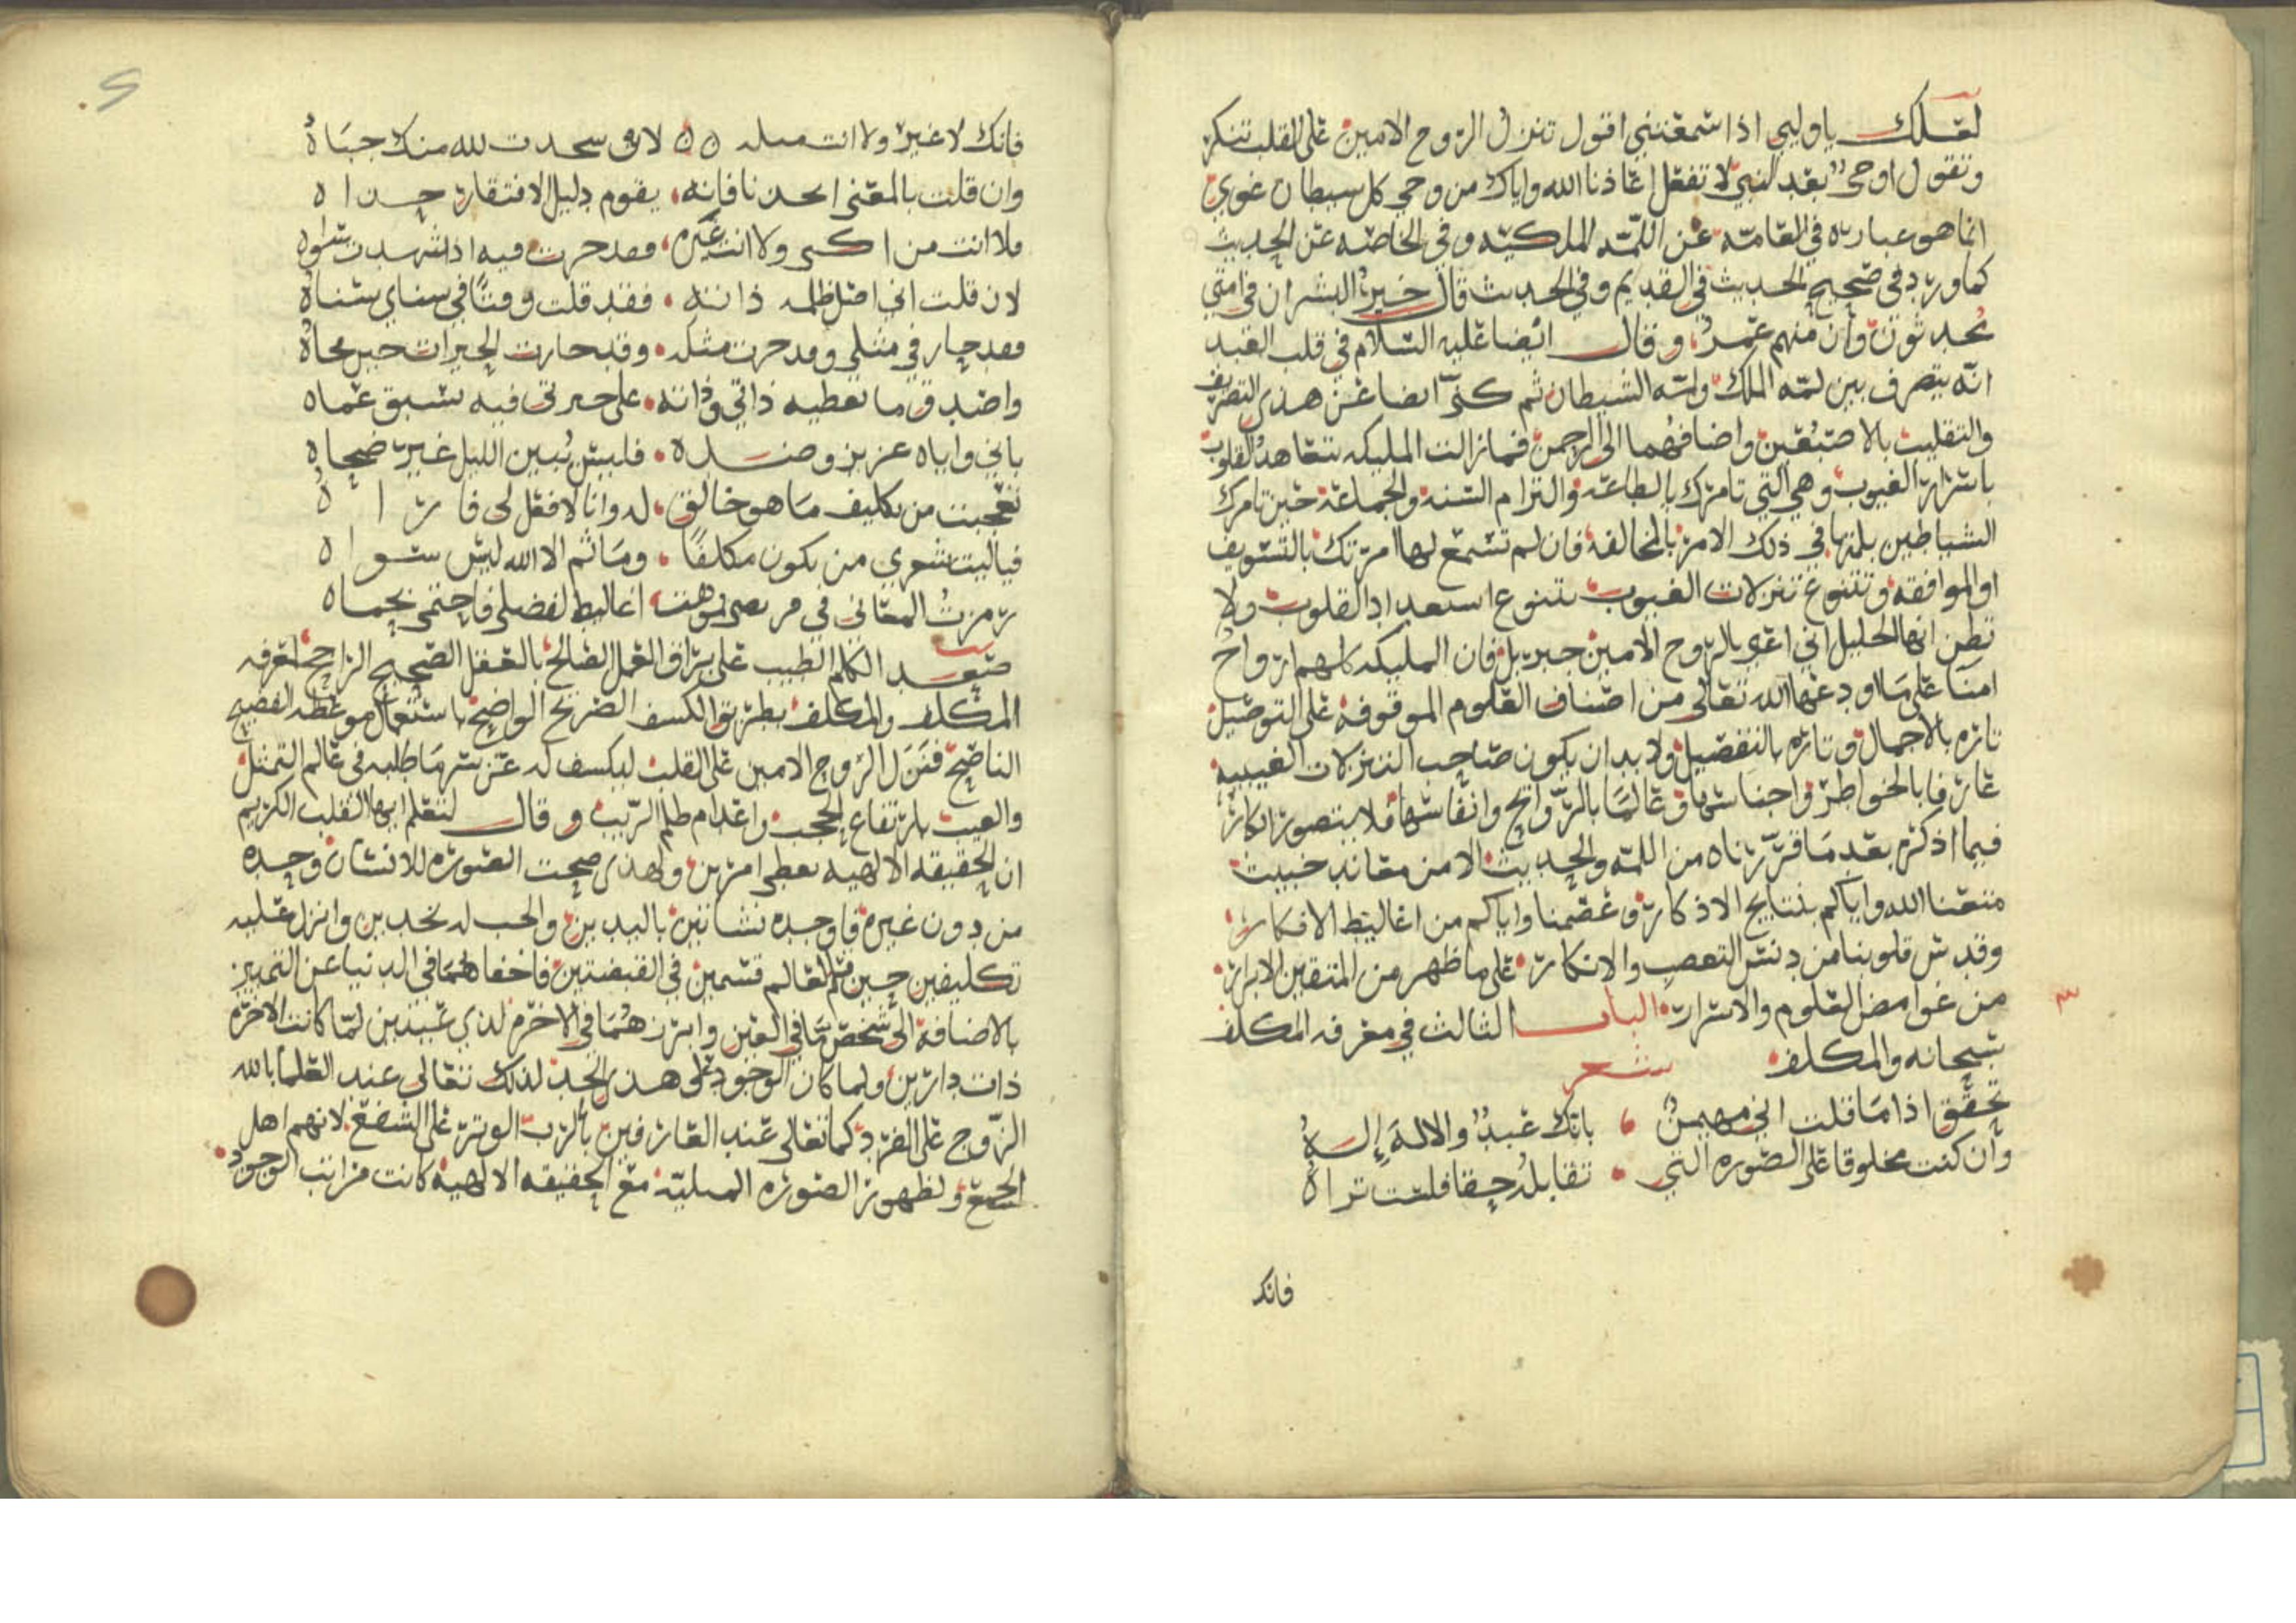 لعلك ياوليي اذا سمعتني اقول تنزل الروح الامين على القلب تنكر
وتقول اوحي بعد النبي لا تفعل اعاذنا الله واياك من وحي كل شيطان غوي
انما هو عبارة في العامة عن اللمة الملكية وفي الخاصة عن الحديث
كما ورد في صحيح الحديث في القديم وفي الحديث قال خير البشر ان في امتي
محدثون وان منهم عمر وقال ايضا عليه السلام في قلب العبد
انه يتصرف بين لمة الملك ولمة الشيطان ثم كنى ايضا عن هذى التصريف
والتقليب بالاصبعين واضافهما الى الرحمن فما زالت المليكه تتعاهد القلوب
باسرار الغيوب وهي التي تامرك بالطاعة والتزام السنه والجماعة حين تامرك
الشياطين بلمتها في ذلك الامر بالمخالفة فان لم تسمع لها امرتك بالتسويف
او الموافقه وتتنوع تنزلات الغيوب بتنوع استعداد القلوب ولا
تظن ايها الخليل اني اعني بالروح الامين جبريل فان المليكه كلهم ارواح
امنا على ما اودعها الله تعالى من اصناف العلوم الموقوفة على التوصيل
تارة بالاجمال وتارة بالتفصيل ولا بد ان يكون صاحب التنزلات الغيبية
عارفا بالخواطر واجناسها وعالما بالروائح وانفاسها فلا يتصور انكار
فيما اذكره بعد ما قررناه من اللمة والحديث الا من معاند خبيث
متعنا الله واياكم بنتايج الاذكار وعصمنا واياكم من اغاليط الافكار
وقدس قلوبنا من دنس التعصب والانكار على ما ظهر من المتقين الابرار
من غوامض العلوم والاسرار الباب الثالث في معرفه المكلف
سبحانه والمكلف شعر
تحقق اذا ما قلت اني مهيمن بانك عبد والاله إله
وان كنت مخلوقا على الصوره التي تقابله حقا فلست تراه
فانك
فانك لا غير ولا انت مثله لان سجدت لله منك جباه
وان قلت بالمعنى اتحدنا فانه يقوم دليل الافتقار حداه
فلا انت من اكنى ولا انت غيره فقد حرت فيه اذ شهدت سواه
لان قلت اني اصل ظلمه ذاته فقد قلت وقتا في سناي سناه
فقد حار في مثلي وقد حرت مثله وقد حارت الحيرات حين محاه
واصدق ما تعطيه ذاتي وذاته على حيرتي فيه تسبق عماه
باني واياه عزيز وضده فليس يبين الليل غير ضحاه
تعجبت من تكليف ما هو خالق له وانا لا فعل لي فاراه
فياليت شعري من يكون مكلفا وما ثم الا الله ليس سواه
رمزت المعاني في اغاليط لفضلي فاحتمى بحماه
صعد الكلم الطيب على براق العمل الصالح بالعقل الصحيح الراجح لمعرفه
المكلف والمكلف بطريق الكشف الصريح الواضح باستعمال موعظه الفصيح
الناصح فنزل الروح الامين على القلب ليكشف له عن سر ما طلبه في عالم التمثل
والغيب بارتفاع الحجب واعدام ظلم الريب وقال لتعلم ايها القلب الكريم
ان الحقيقه الالهيه تعطى امرين ولهذى صحت الصوره للانسان وحده
من دون غيره فاوجده نشاتين باليدين والحب له نجدين وانزل عليه
تكليفين حين قسم العالم قسمين في القبضتين فاخفاهما في الدنيا عن التمييز
بالاضافة الى شخص ما في العين وابرزهما في الاخرة لذي عينين لما كانت الاخرة
ذات دارين ولما كان الوجود على هذى الحد لذلك تعالى عند العلما بالله
الزوج على الفرد كما تعالى عند العارفين بالرب الوتر على الشفع لانهم اهل
الجمع ولظهور الصوره المثليه مع الحقيقه الالهية كانت مراتب الوجود